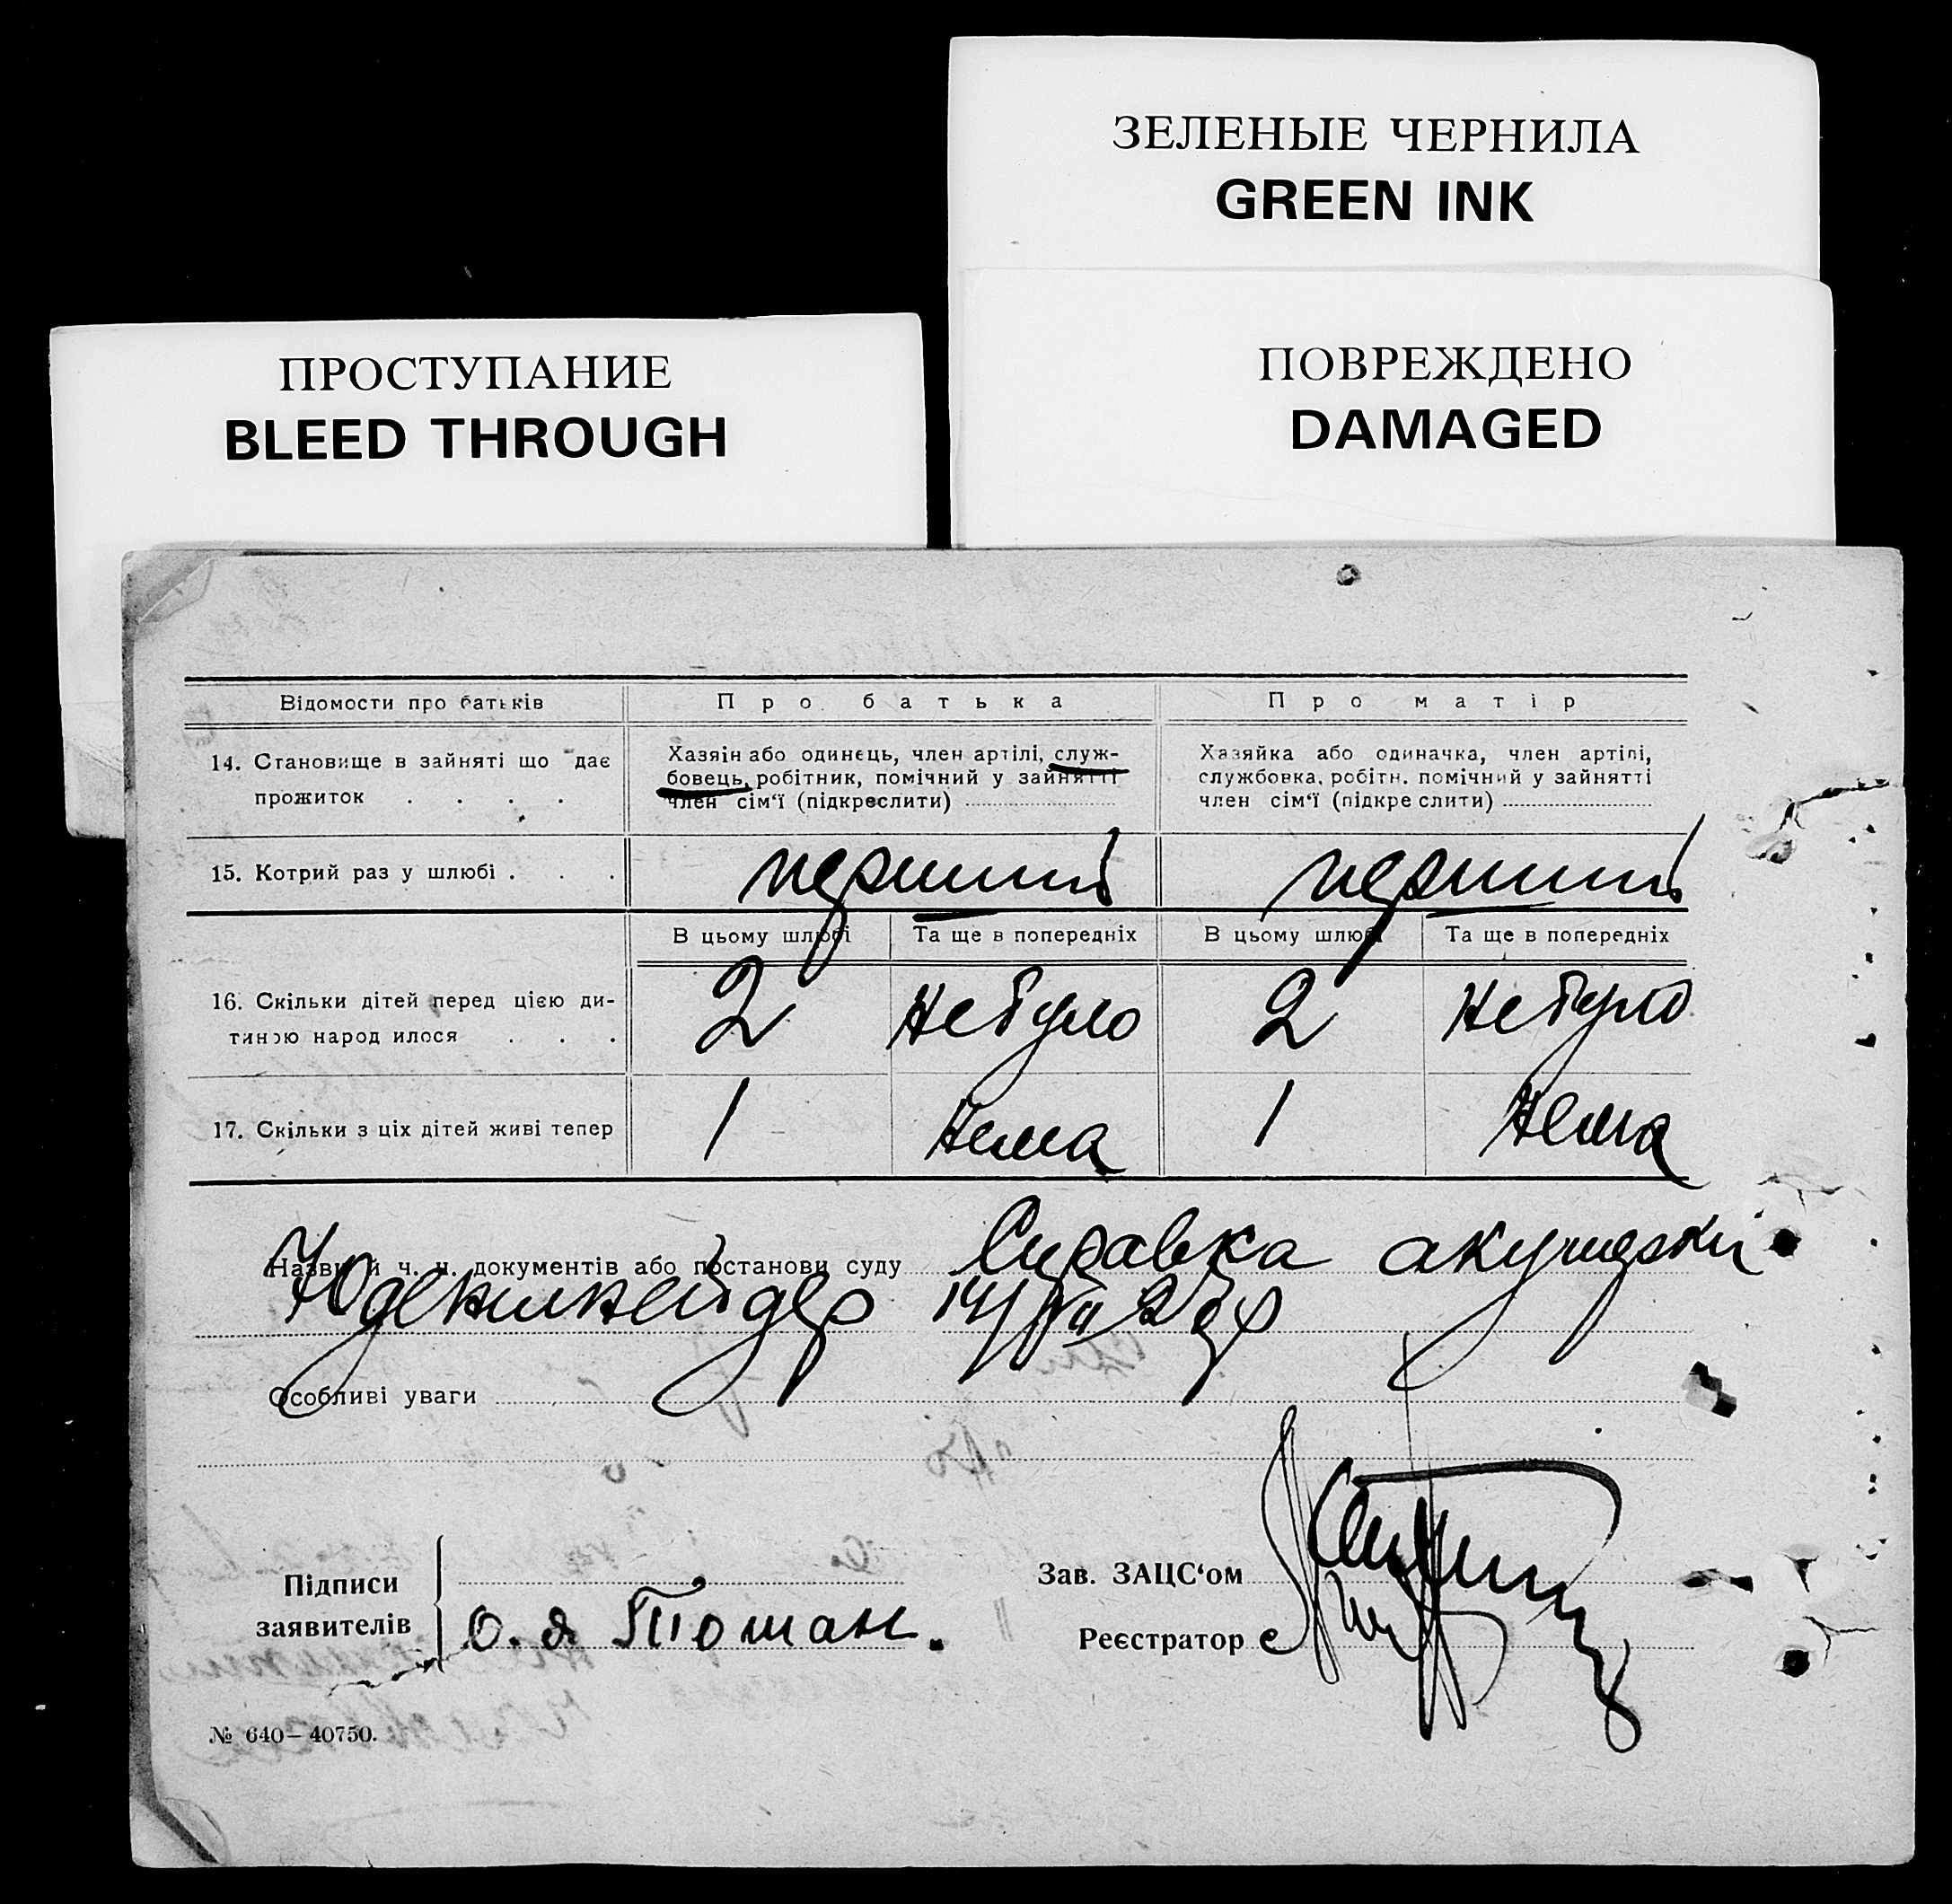 ЗЕЛЕНЫЕ ЧЕРНИЛА
GREEN INK
ПОВРЕЖДЕНО
DAMAGED
ПРОСТУПАНИЕ
BLEED THROUGH
Відомости про батьків
Про батька
Про матір
14. Становище в зайняті що дає
прожиток . . . .
Хазяін або одинець, член артілі, служ-
бовець, робітник, помічний у зайнятті
член сім'ї (підкреслити)
Хазяйка або одиначка, член артілі,
службовка, робітн. помічний у зайнятті
член сім'ї (підкреслити)
15. Котрий раз у шлюбі . . .
перший
перший
В цьому шлюбі
Та ще в попередніх
В цьому шлюбі
Та ще в попередніх
16. Скільки дітей перед цією ди-
тиною народилося . . .
2
не було
2
не було
17. Скільки з ціх дітей живі тепер
1
нема
1
нема
Назви й ч. ч. документів або постанови суду Справка акушерки
14/VII
Особливі уваги
Підписи
заявителів
О. Я.
Зав. ЗАЦС'ом
Реєстратор
№ 640—40750.